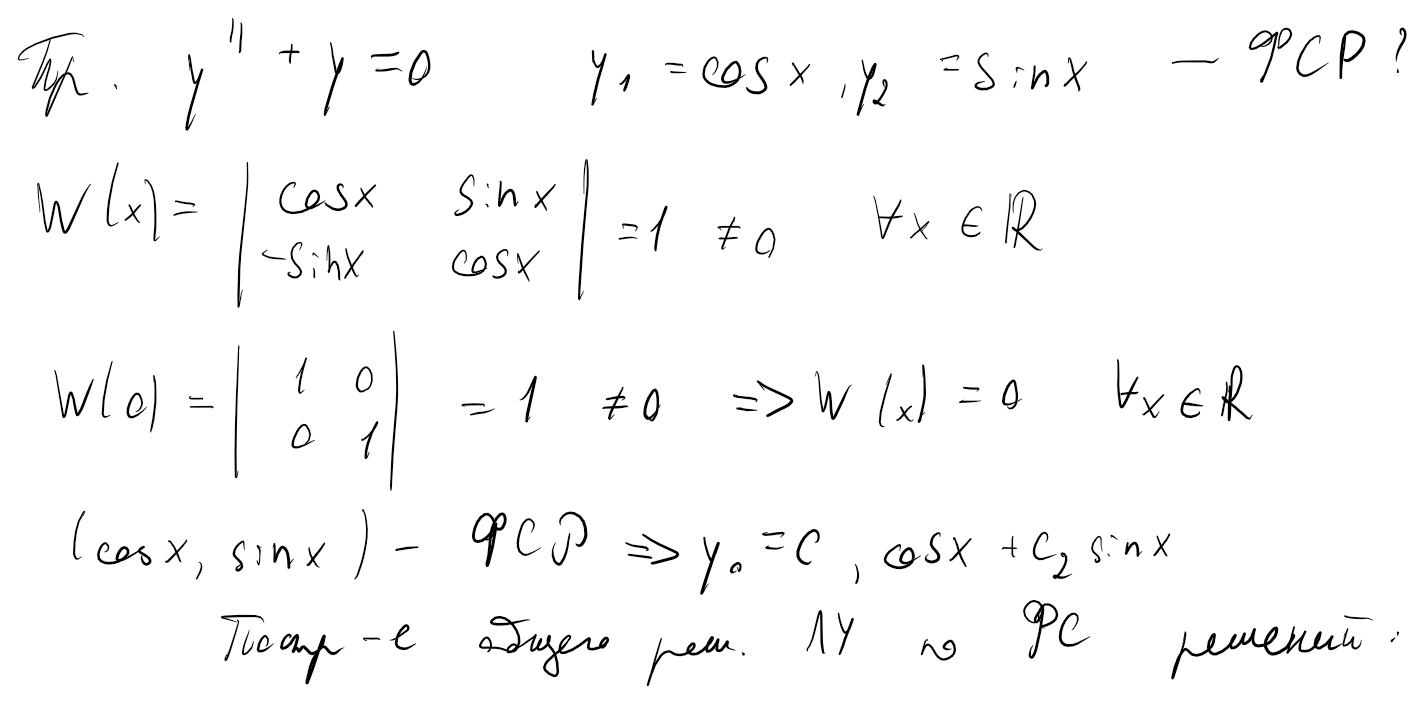 Пр. y'' + y = 0 y₁ = cos x, y₂ = sin x — ФСР?
W(x) = | cosx sinx | = 1 ≠ 0 ∀x ∈ ℝ
| -sinx cosx |
W(0) = | 1 0 | = 1 ≠ 0 => W(x) = 0 ∀x ∈ ℝ
| 0 1 |
(cos x, sin x) - ФСР => y₀ = C₁ cosx + C₂ sinx
Постр-е общего реш. ЛУ по ФС решений.